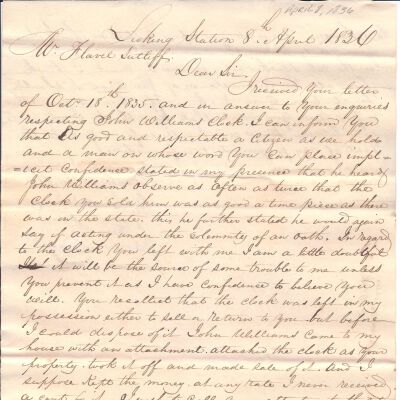 APRIL 8, 1836
Licking Station 8th April 1836
Mr Flavel Sutliff
Dear Sir.
I received Your letter
of Oct. 18th 1835. and in answer to Your enquiries
respecting John Williams Clock. I can inform You
that as good and respectable a Citizen as we hold
and a man on whose word You can place impl-
icit confidence stated in my presence that he heard
John Williams observe as often as twice that the
Clock You sold him was as good a time piece as there
was in the state. this he further stated he would again
say if acting under the solemnity of an oath. In regard
to the Clock You left with me I am a little doubtful
it will be the source of some trouble to me unless
You prevent it as I have confidence to believe You
will. You recollect that the clock was left in my
possession either to sell or return to You but before
I could dispose of it John Williams came to my
house with an attachment attached the clock as Your
property. took it off and made sale of it. And I
suppose kept the money. at any rate I never received
a cent of it